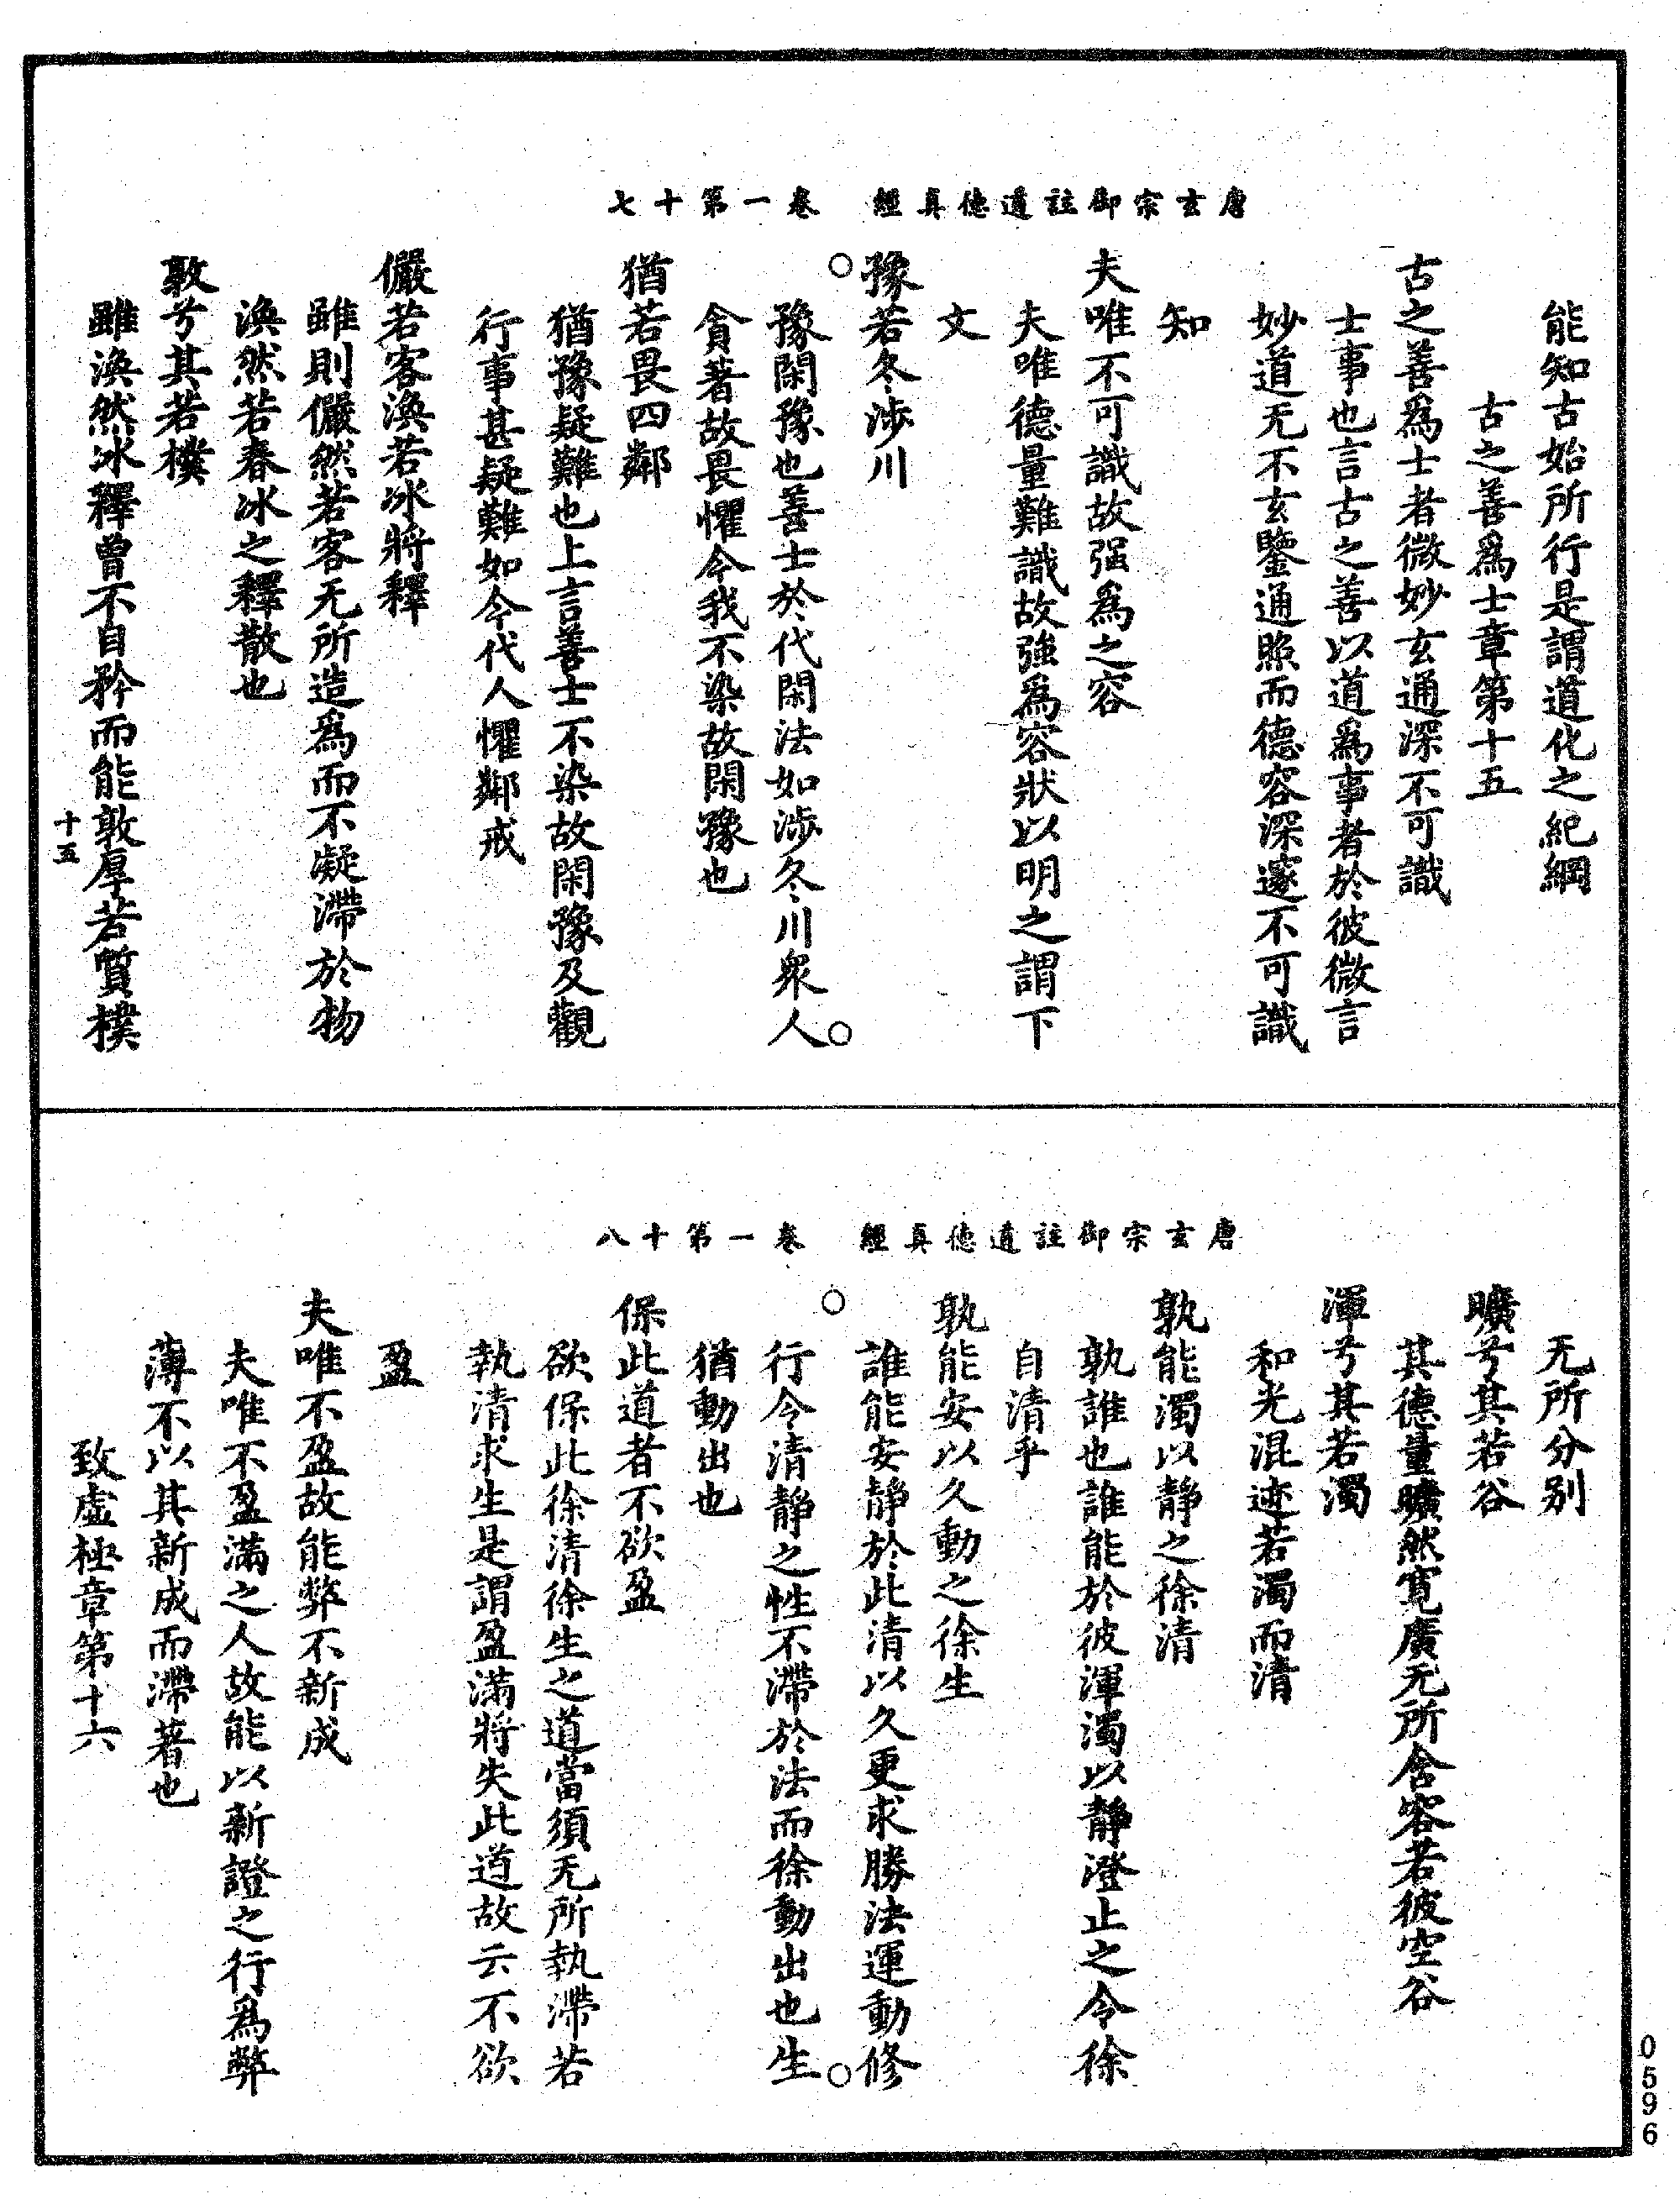 唐玄宗御註道德真經　卷一第十七
能知古始所行是謂道化之紀綱
古之善爲士章第十五
古之善爲士者微妙玄通深不可識
士事也言古之善以道爲事者於彼微言
妙道无不玄鑒通照而德容深邃不可識
知
夫唯不可識故强爲之容
夫唯德量難識故強爲容狀以明之謂下
文
豫若冬涉川
豫閑豫也善士於代閑法如涉冬川衆人
貪著故畏懼今我不染故閑豫也
猶若畏四鄰
猶豫疑難也上言善士不染故閑豫及觀
行事甚疑難如今代人懼鄰戒
儼若客渙若冰將釋
雖則儼然若客无所造爲而不凝滯於物
渙然若春冰之釋散也
敦兮其若樸
雖渙然冰釋曾不自矜而能敦厚若質樸
十五
唐玄宗御註道德真經　卷一第十八
无所分别
曠兮其若谷
其德量曠然寬廣无所含容若彼空谷
渾兮其若濁
和光混迹若濁而清
孰能濁以靜之徐清
孰誰也誰能於彼渾濁以靜澄止之令徐
自清乎
孰能安以久動之徐生
誰能安靜於此清以久更求勝法運動修
行令清靜之性不滯於法而徐動出也生
猶動出也
保此道者不欲盈
欲保此徐清徐生之道當須无所執滯若
執清求生是謂盈滿將失此道故云不欲
盈
夫唯不盈故能弊不新成
夫唯不盈滿之人故能以新證之行爲弊
薄不以其新成而滯著也
致虛極章第十六
0596